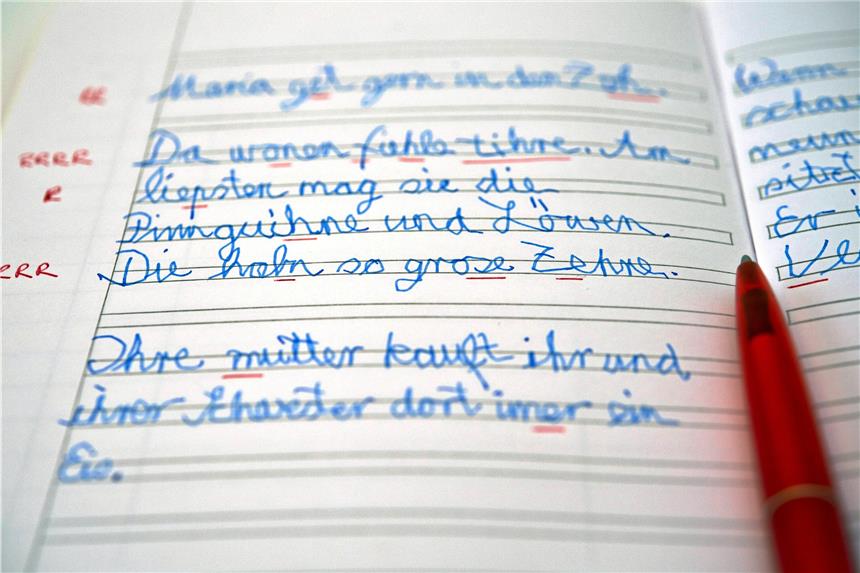 RR Maria get gern in den Zoh.
RRRR Da wonen fiehle tihre. Am
R liepsten mag sie die
Pinnguihne und Löwen.
RRR Die habn so grose Zehne.
Ihre mutter kauft ihr und
ihrer dort imer ein
Eis.
Wenn
schau
Er
Ve